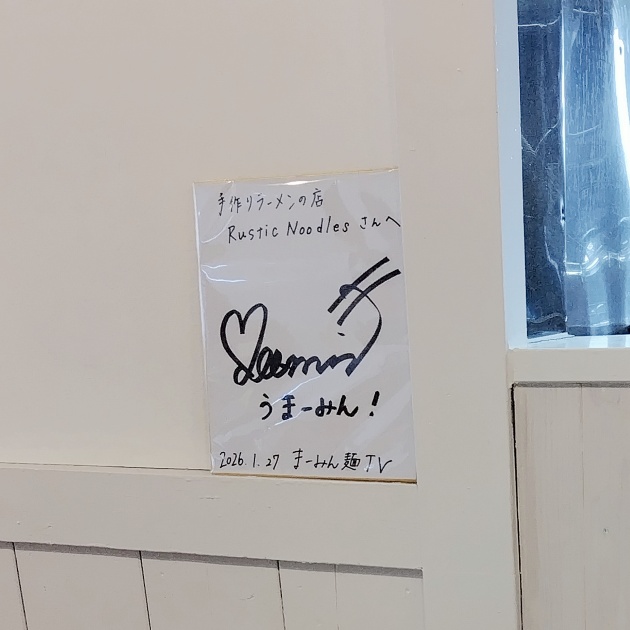 手作りラーメンの店
Rustic Noodles さんへ
うまーみん!
2026.1.27 まーみん麺TV